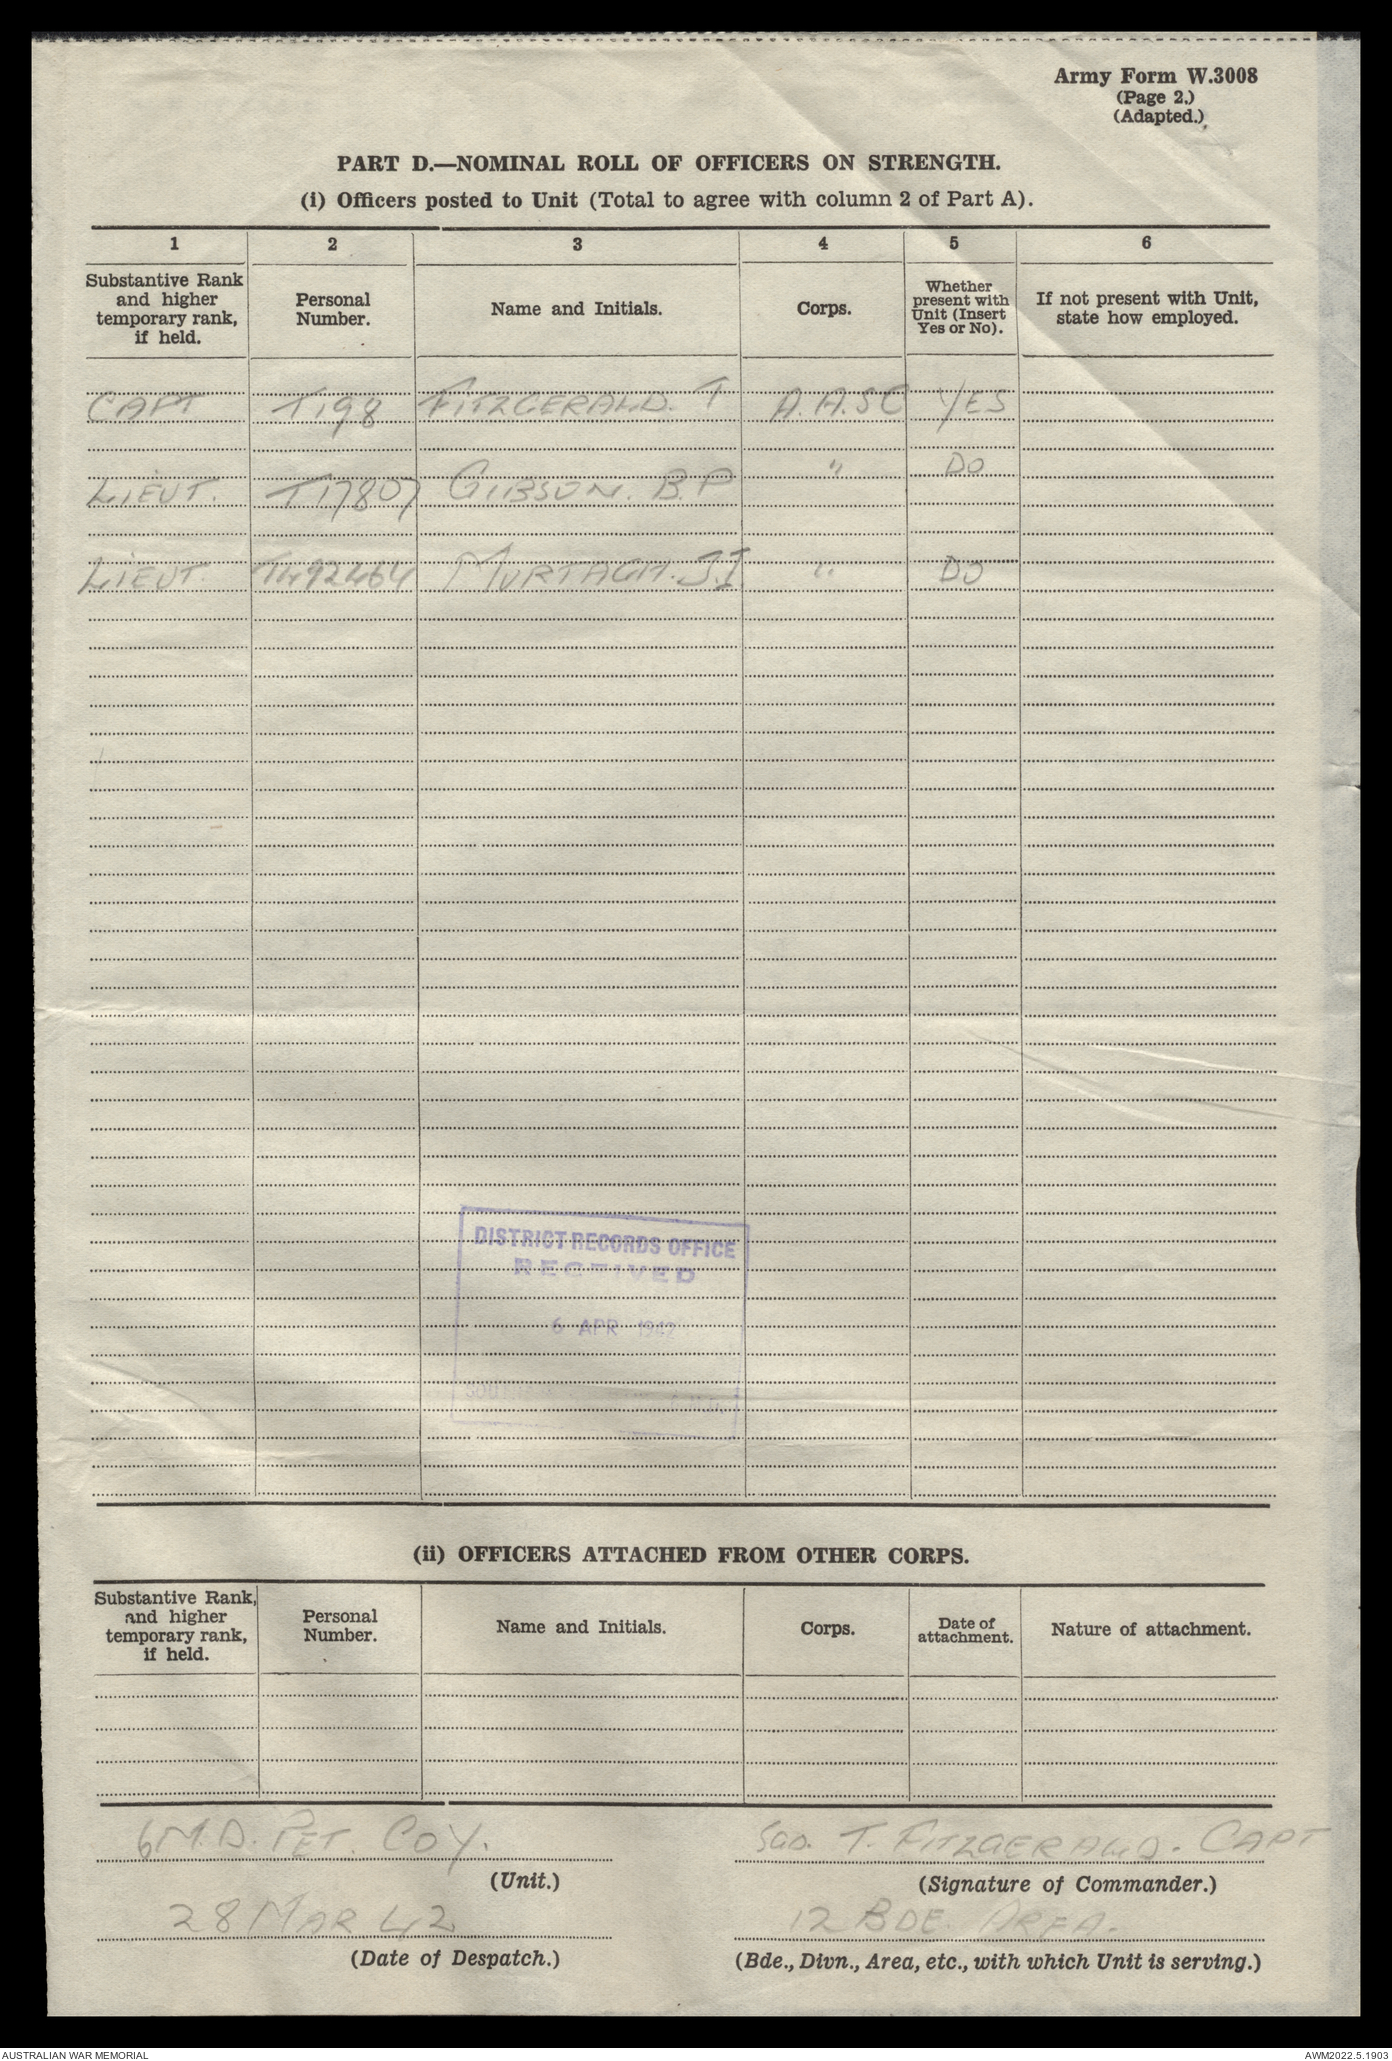 Army Form W.3008
(Page 2.)
(Adapted.)
PART D.—NOMINAL ROLL OF OFFICERS ON STRENGTH.
(i) Officers posted to Unit (Total to agree with column 2 of Part A).
1 2 3 4 5 6
Substantive Rank and higher temporary rank, if held. Personal Number. Name and Initials. Corps. Whether present with Unit (Insert Yes or No). If not present with Unit, state how employed.
CAPT T198 FITZGERALD. T A.A.SC YES
LIEUT. T17807 GIBSON. B.P " DO
LIEUT. MURTAGH. J.I. " DO
DISTRICT RECORDS OFFICE
RECEIVED
6 APR 1942
(ii) OFFICERS ATTACHED FROM OTHER CORPS.
Substantive Rank, and higher temporary rank, if held. Personal Number. Name and Initials. Corps. Date of attachment. Nature of attachment.
6 M.D. PET. COY. SGD. T. FITZGERALD. CAPT
(Unit.) (Signature of Commander.)
28 MAR 42 12 BDE. AREA.
(Date of Despatch.) (Bde., Divn., Area, etc., with which Unit is serving.)
AUSTRALIAN WAR MEMORIAL AWM2022.5.1903